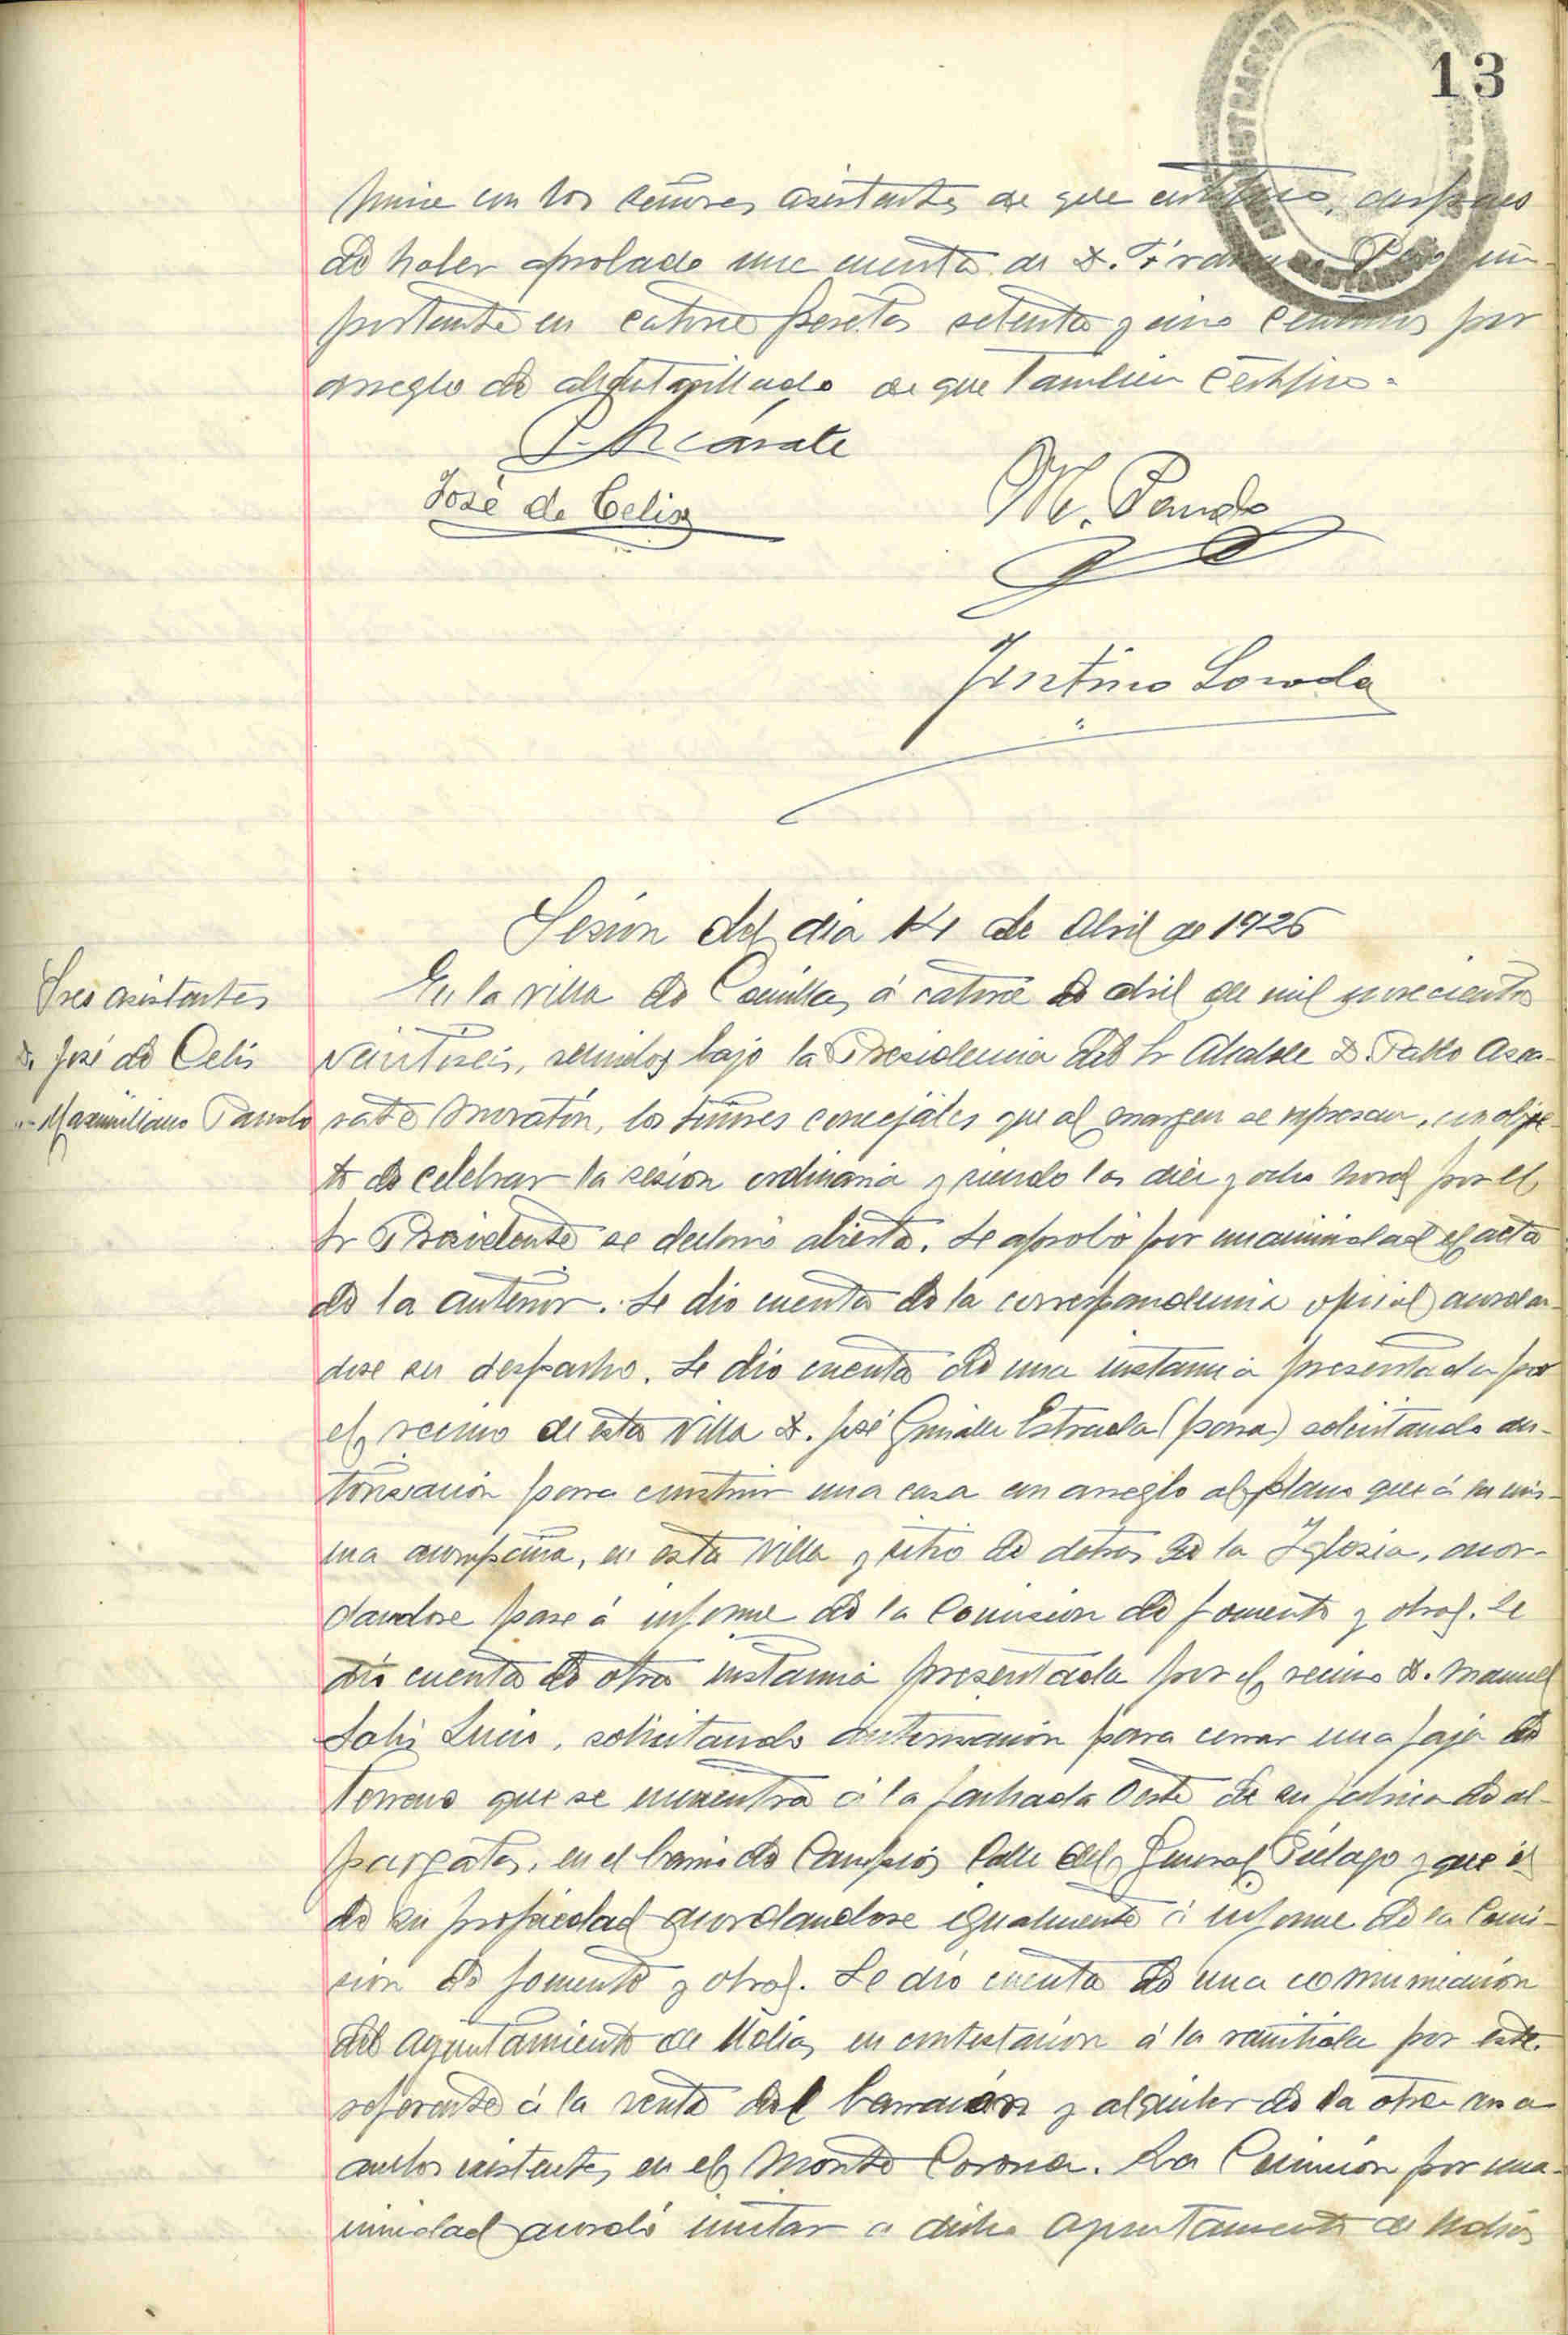 13
firma con los señores asistentes de que certifico, despues
de haber aprobado una cuenta de D. im-
portante en catorce pesetas setenta y cinco centimos por
arreglo de alcantarillado de que tambien certifico.
P. Azcárate
José de Celis
M. Pando
Justino Losada
Sesión del dia 14 de Abril de 1926
Sres asistentes
En la villa de Comillas, á catorce de abril de mil novecientos
D. José de Celis
veintiseis, reunidos bajo la Presidencia del Sr Alcalde D. Pablo Azca-
" Maximiliano Pando
rate Moratón, los señores concejales que al margen se expresan, con obje-
to de celebrar la sesión ordinaria y siendo las diez y ocho horas por el
Sr Presidente se declaró abierta. Se aprobó por unanimidad el acta
de la anterior. Se dio cuenta de la correspondencia oficial acordan-
dose su despacho. Se dio cuenta de una instancia presentada por
el vecino de esta villa D. José Estrada ( ) solicitando au-
torización para construir una casa con arreglo al plano que á la mis-
ma acompaña, en esta villa y sitio de detrás de la Iglesia, acor-
dandose pase á informe de la Comisión de fomento y obras. Se
dio cuenta de otra instancia presentada por el vecino D. Manuel
solicitando autorización para cerrar una faja de
terreno que se encuentra á la fachada Oeste de su fabrica de al-
pargatas, en el barrio de Campíos Calle del General Piélago y que es
de su propiedad acordandose igualmente á informe de la Comi-
sión de fomento y obras. Se dio cuenta de una comunicación
del Ayuntamiento de Udias, en contestación á la remitida por este
referente á la venta del barracón y alquiler de la otra casa
ambos existentes en el Monte Corona. La Comisión por una-
nimidad acordó invitar a dicho Ayuntamiento de Udias